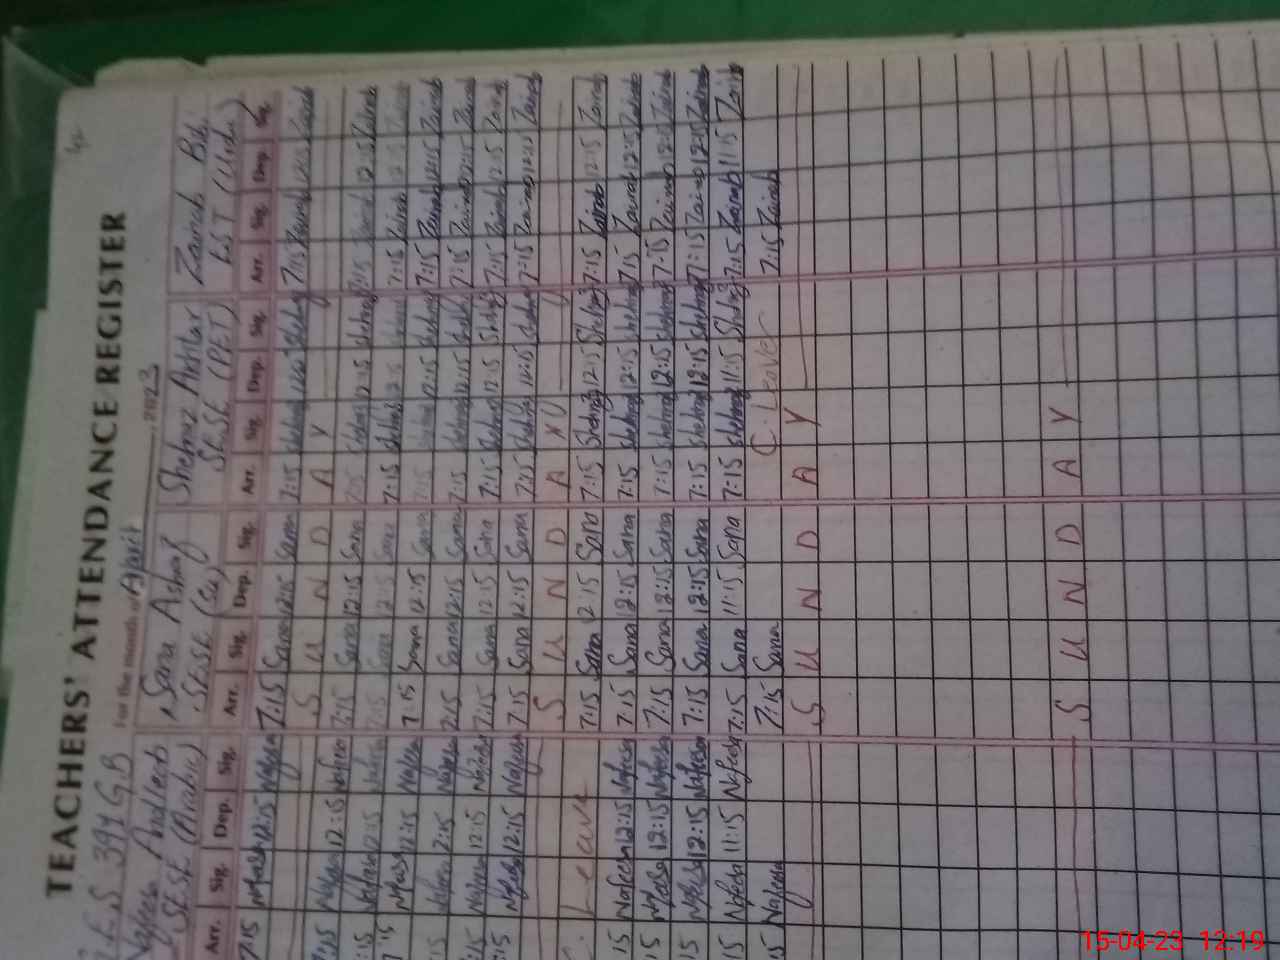 TEACHERS' ATTENDANCE REGISTER
For the month of April 2023
Sana Ashraf Shehnaz Akhtar Zainab Bibi
SESE (PET) EST (Urdu)
SESE (Arabic)
Arr. Sig. Dep. Sig. Arr. Sig. Dep. Sig. Arr. Sig. Dep. Sig. Arr. Sig. Dep. Sig.
7:15 Nafeesa 12:15 Nafeesa 7:15 Sana 12:15 Sana 7:15 Shehnaz 12:15 Shehnaz 7:15 Zainab 12:15 Zainab
S U N D A Y
7:15 Nafeesa 12:15 Nafeesa 7:15 Sana 12:15 Sana 7:15 Shehnaz 12:15 Shehnaz 7:15 Zainab 12:15 Zainab
:15 Nafeesa 12:15 Nafeesa 7:15 Sana 12:15 Sana 7:15 Shehnaz 12:15 Shehnaz 7:15 Zainab 12:15 Zainab
7:15 Nafeesa 12:15 Nafeesa 7:15 Sana 12:15 Sana 7:15 Shehnaz 12:15 Shehnaz 7:15 Zainab 12:15 Zainab
:15 Nafeesa 12:15 Nafeesa 7:15 Sana 12:15 Sana 7:15 Shehnaz 12:15 Shehnaz 7:15 Zainab 12:15 Zainab
:15 Nafeesa 12:15 Nafeesa 7:15 Sana 12:15 Sana 7:15 Shehnaz 12:15 Shehnaz 7:15 Zainab 12:15 Zainab
:15 Nafeesa 12:15 Nafeesa 7:15 Sana 12:15 Sana 7:15 Shehnaz 12:15 Shehnaz 7:15 Zainab 12:15 Zainab
S U N D A Y
C. Leave 7:15 Sana 12:15 Sana 7:15 Shehnaz 12:15 Shehnaz 7:15 Zainab 12:15 Zainab
15 Nafeesa 12:15 Nafeesa 7:15 Sana 12:15 Sana 7:15 Shehnaz 12:15 Shehnaz 7:15 Zainab 12:15 Zainab
15 Nafeesa 12:15 Nafeesa 7:15 Sana 12:15 Sana 7:15 Shehnaz 12:15 Shehnaz 7:15 Zainab 12:15 Zainab
15 Nafeesa 12:15 Nafeesa 7:15 Sana 12:15 Sana 7:15 Shehnaz 12:15 Shehnaz 7:15 Zainab 12:15 Zainab
15 Nafeesa 11:15 Nafeesa 7:15 Sana 11:15 Sana 7:15 Shehnaz 11:15 Shehnaz 7:15 Zainab 11:15 Zainab
15 Nafeesa 7:15 Sana C. Leave 7:15 Zainab
S U N D A Y
S U N D A Y
15-04-23 12:19